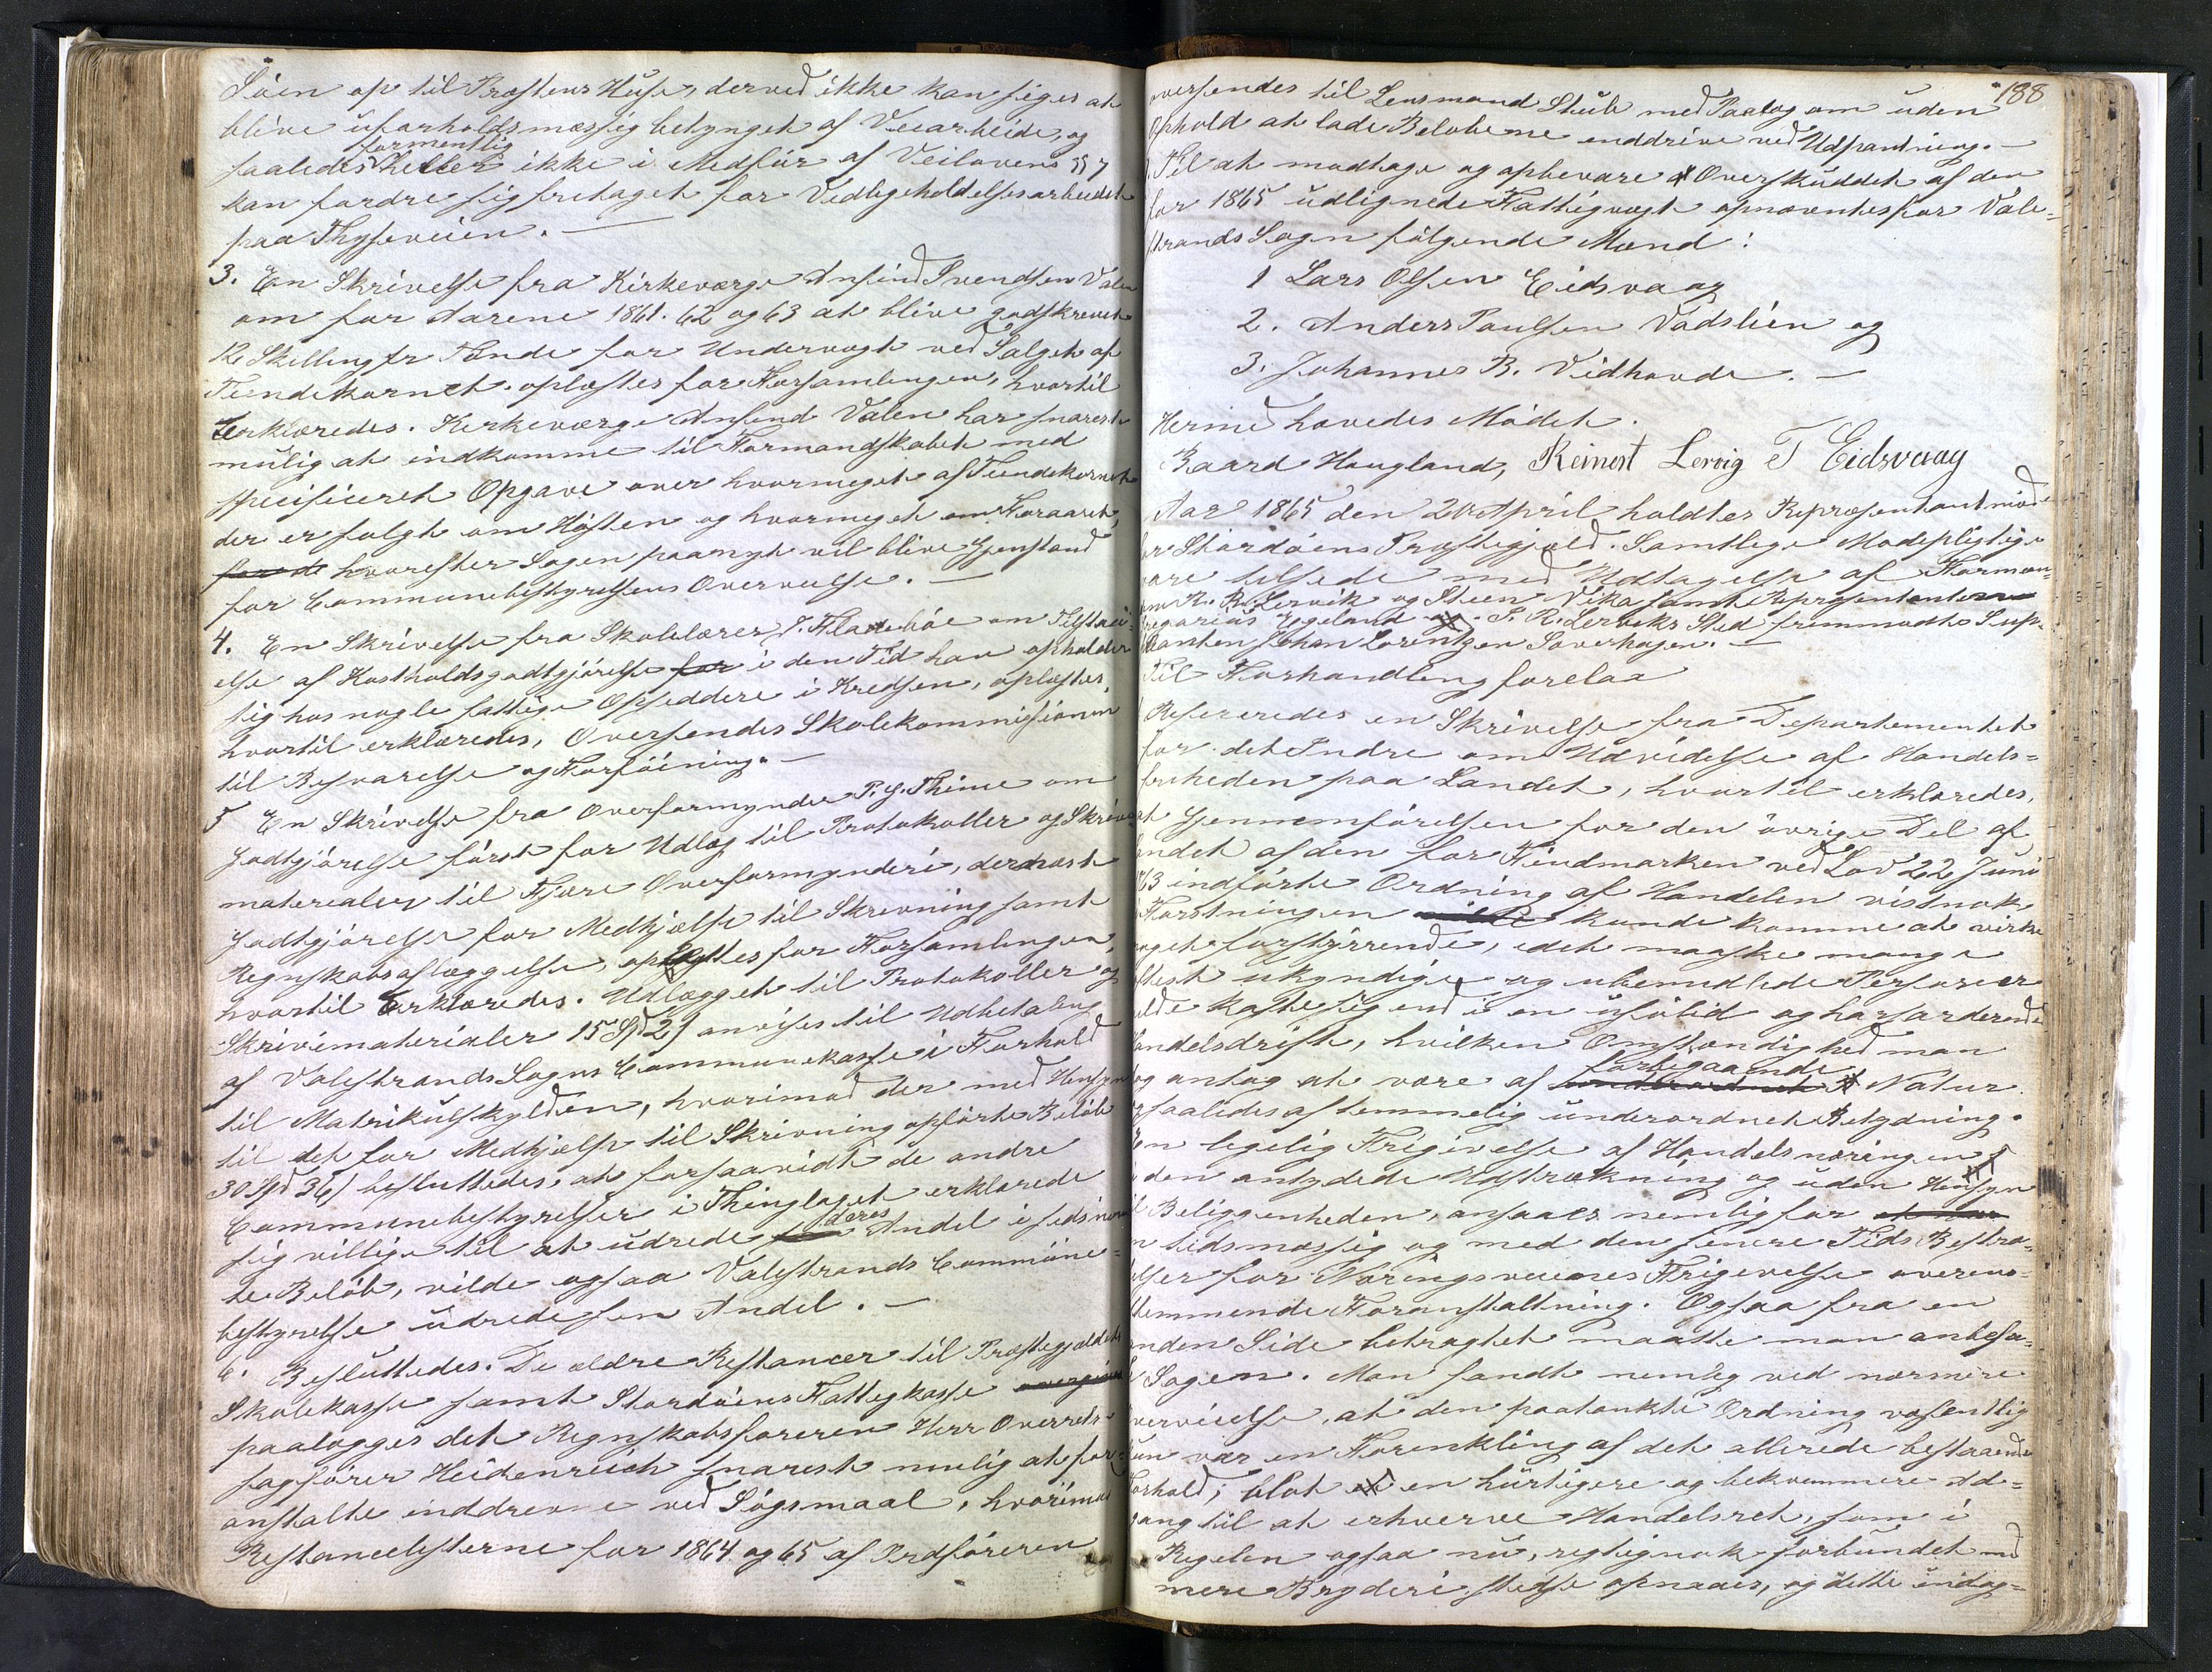 Söen op til Præstens Huse, derved ikke kan siges at
blive uforholdsmæssig betynget af Veiarbeide, og
saaledes formentlig heller ikke i Medfür af Veilovens §57
kan fordre sig fritaget for Vedligeholdelsesarbeidet
paa Thyseveien. —
3. En Skrivelse fra Kirkeværge Ansind Svendsen Valen
om for Aarene 1861. 62 og 63 at blive godskrevet
12 Skilling pr Tønde for Undervægt ved Salget af
Tiendekornet oplæstes for Forsamlingen, hvortil
Erklæredes. Kirkeværge Ansend Valen har snarest
mulig at indkomme til Formandskabet med
specificeret Opgave over hvormeget af Tiendekornet
der er solgt om Høsten og hvormeget om Foraaret,
hvorefter Sagen paanyt vil blive Gjenstand
for Communebestyrelsens Overveielse. —
4. En Skrivelse fra Skolelærer J. Flatebøe om Tilstaa-
else af Kostholdsgodtgjörelse for i den Tid han opholder
sig hos nogle fattige Opsiddere i Kredsen, oplæstes
hvortil erklæredes, Oversendes Skolekommissionen
til Besvarelse og Forföining. —
5 En Skrivelse fra Overformynder P. G. Thime om
Godtgjörelse först for Udlæg til Protokoller og Skrive
materialer til Fjære Overformynderi, dernæst
Godtgjörelse for Medhjælp til Skrivning samt
Regnskabsaflæggelse, oplæstes for Forsamlingen,
hvortil Erklæredes. Udlægget til Protokoller og
Skrivematerialer 15 Spd 2 § anvises til Udbetaling
af Valestrands Sogns Communekasse i Forhold
til Matrikulskylden, hvorimod der med Hensyn
til det for Medhjælp til Skrivning opförte Belöb
30 Spd 36 § besluttedes, at forsaavidt de andre
Communebestyrelser i Thinglaget erklærede
sig villige til at udrede deres Andel i sidsnævn
te Belöb, vilde ogsaa Valestrands Commune-
bestyrelse udrede sin Andel. —
6. Besluttedes. De ældre Restancer til Præstegjeldets
Skolekasse samt Stordöens Fattigkasse
paalægges det Regnskabsföreren Herr Overrets-
sagförer Heidenreich snarest mulig at for-
anstalte inddrevne ved Sögsmaal, hvorimod
Restancelisterne for 1864 og 65 af Ordföreren
188
oversendes til Lensmand Stub med Paalæg om uden
Ophold at lade Belöbene inddrive ved Udpantning. —
Til at modtage og opbevare Overskuddet af den
for 1865 udlignede Fattigvægt opnævntes for Vale-
strands Sogn fölgende Mænd:
1 Lars Olsen Eidsvaag
2. Anders Paulsen Vadslien og
3. Johannes B. Vidhovde. —
Hermed hævedes Mödet.
Baard Hougland, Reinert Lervig T Eidsvaag
Aar 1865 den 20 April holdtes Repræsentantmöde
for Stordöens Præstegjæld. Samtlige Mödepligtige
vare tilstede med Undtagelse af Formæn-
R. R. Lervik og Steen Vika samt Repræsentanterne
Gregorius Egeland og S. R. Lerviks Sted fremmödte Sup-
leanten Johan Lorentzen Soverhagen. —
Til Forhandling forelaa
Refereredes en Skrivelse fra Departementet
for det Indre om Udvidelse af Handels-
friheden paa Landet, hvortil erklæredes,
at Gjennemförelsen for den övrige Del af
Landet af den for Findmarken ved Lov 22 Juni
1863 indförte Ordning af Handelen vistnok
i Forstningen kunde komme at virke
noget forstyrrende, idet maaske mange
ukyndige og ubemidlede Personer
vilde kaste sig ind i en usolid og hasarderende
Handelsdrift, hvilken Omstændighed man
dog antog at være af forbigaaende Natur
og saaledes af temmelig underordnet Betydning.
En legelig Frigivelse af Handelsnæringen
i den antydede Udstrækning og uden Hensyn
til Beliggenheden, ansaaes nemlig for
en tidsmæssig og med den senere Tids Bestræ-
belser for Næringsveienes Frigivelse overens-
stemmende Foranstaltning. Ogsaa fra en
anden Side betragtet maatte man anbefa-
le Sagen. Man fandt nemlig ved nærmere
Overveielse, at den paatænkte Ordning væsentlig
kun var en Forenkling af det allerede bestaaende
Forhold; blot en hurtigere og bekvemmere Ad-
gang til at erhverve Handelsret, som i
Regelen ogsaa nu, rigtignok forbundet med
mere Bryderi stedse opnaaes, og dette endog-